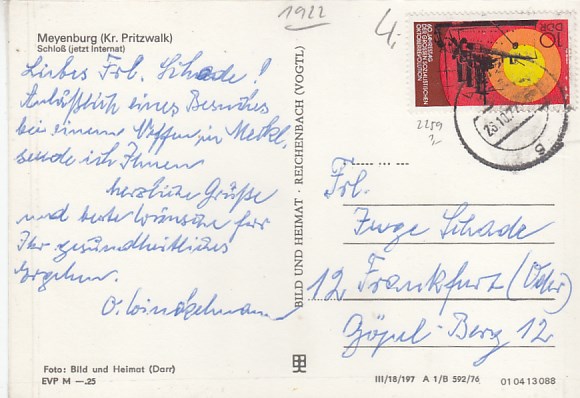 1922
4,-
Meyenburg (Kr. Pritzwalk)
Schloß (jetzt Internat)
Liebes Frl. Schade!
Anläßlich eines Besuches
bei einem Neffen in Meckl.
sende ich Ihnen
herzliche Grüße
und beste Wünsche für
Ihr gesundheitliches
Ergehen.
O. Winckelmann
Foto: Bild und Heimat (Darr)
EVP M —.25
BILD UND HEIMAT · REICHENBACH (VOGTL)
DDR 10
60. JAHRESTAG
DER GROSSEN SOZIALISTISCHEN
OKTOBERREVOLUTION
2259
Frl.
Schade
12 Frankfurt (Oder)
Göpel-Berg 12
III/18/197 A 1/B 592/76
01 04 13 088